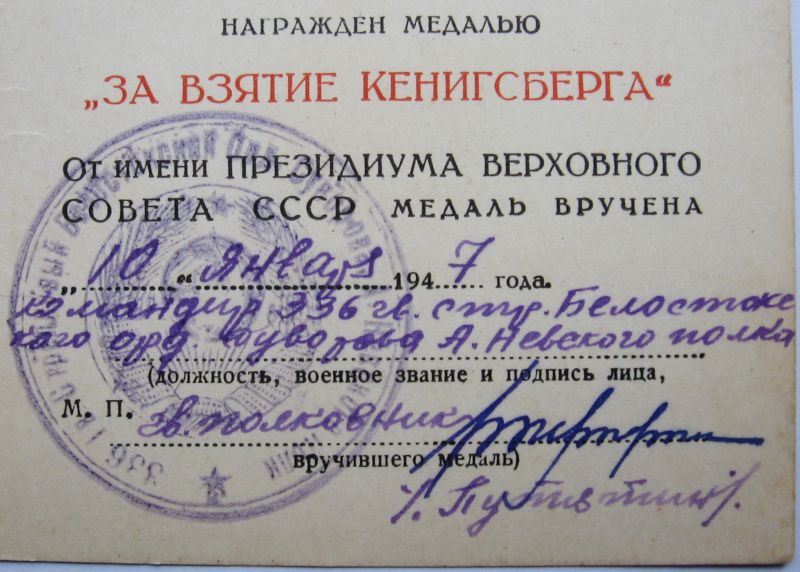 НАГРАЖДЕН МЕДАЛЬЮ
„ЗА ВЗЯТИЕ КЕНИГСБЕРГА“
ОТ ИМЕНИ ПРЕЗИДИУМА ВЕРХОВНОГО
СОВЕТА СССР МЕДАЛЬ ВРУЧЕНА
„10“ января 1947 года.
командир 336 гв. стр. Белосток
кого орд Суворова А. Невского полка
(должность, военное звание и подпись лица,
М. П. гв. полковник
вручившего медаль)
(Путятин).
336